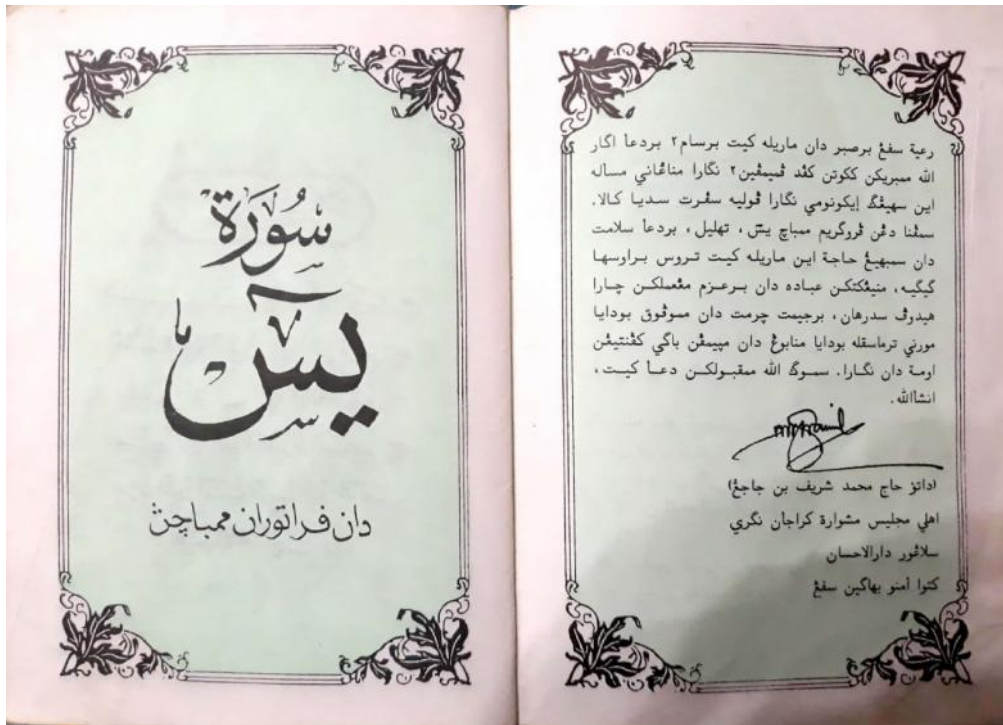 رعية سڤڠ برصبر دان ماريله كيت برسام٢ بردعأ اݢار
الله ممبريكن ككوتن كڤد ڤميمڤين٢ نݢارا مناڠاني مسأله
اين سهيڠݢ إيكونومي نݢارا ڤوليه سڤرت سديا كالا.
سمڤنا دڠن ڤروݢريم ممباچ يس، تهليل، بردعأ سلامت
دان سمبهيڠ حاجة اين ماريله كيت تروس براوسها
ݢيݢيه، منيڠكتكن عباده دان برعزم مڠعملكن چارا
هيدوڤ سدرهان، برجيمت چرمت دان مموڤوق بودايا
مورني ترماسقله بودايا منابوڠ دان مپيمڤن باݢي كڤنتيڠن
اومة دان نݢارا. سموݢ الله ممقبولكن دعأ كيت،
انشأالله.
(داتؤ حاج محمد شريف بن جاجڠ)
اهلي مجليس مشوارة كراجان نݢري
سلاڠور دارالاحسان
كتوا أمنو بهاݢين سڤڠ
سُورَة
يسٓ
دان ڤراتوران ممباچڽ